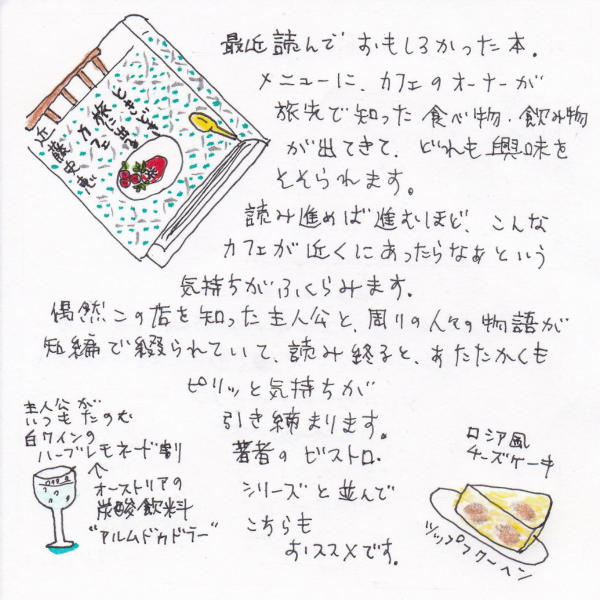 ときどき
旅に出る
カフェ
近藤史恵
最近読んでおもしろかった本。
メニューに、カフェのオーナーが
旅先で知った食べ物・飲み物
が出てきて、どれも興味を
そそられます。
読み進めば進むほど、こんな
カフェが近くにあったらなぁという
気持ちがふくらみます。
偶然この店を知った主人公と、周りの人々の物語が
短編で綴られていて、読み終ると、あたたかくも
ピリッと気持ちが
引き締まります。
著者のビストロ
シリーズと並んで
こちらも
おススメです。
主人公が
いつもたのむ
白ワインの
ハーブレモネード割り
↑
オーストリアの
炭酸飲料
"アルムドゥドラー"
ロシア風
チーズケーキ
ツップフクーヘン